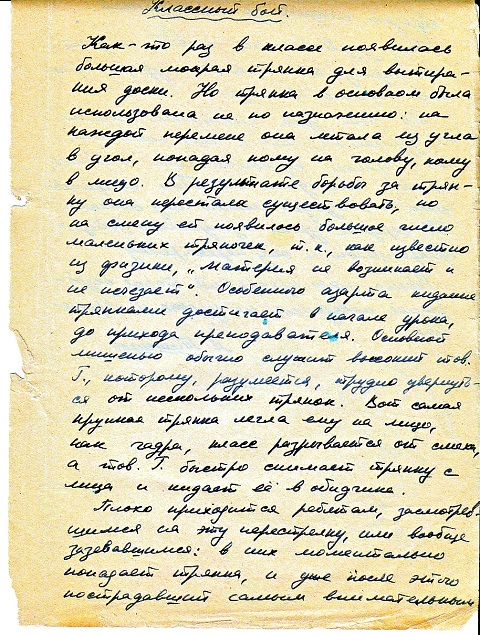 Классный бой.
Как-то раз в классе появилась
большая мокрая тряпка для вытира-
ния доски. Но тряпка в основном была
использована не по назначению: на
каждой перемене она летала из угла
в угол, попадая кому на голову, кому
в лицо. В результате борьбы за тряп-
ку она перестала существовать, но
на смену ей появилось большое число
маленьких тряпочек, т.к., как известно
из физики, „материя не возникает и
не исчезает“. Особенного азарта кидание
тряпками достигает в начале урока,
до прихода преподавателя. Основной
мишенью обычно служит высокий тов.
Г., которому, разумеется, трудно увернуть-
ся от нескольких тряпок. Вот самая
крупная тряпка легла ему на лицо,
как чадра, класс разрывается от смеха,
а тов. Г. быстро снимает тряпку с
лица и кидает её в обидчика.
Плохо приходится ребятам, засмотрев-
шимся на эту перестрелку, или вообще
зазевавшимся: в них моментально
попадает тряпка, и уже после этого
пострадавший самым внимательным